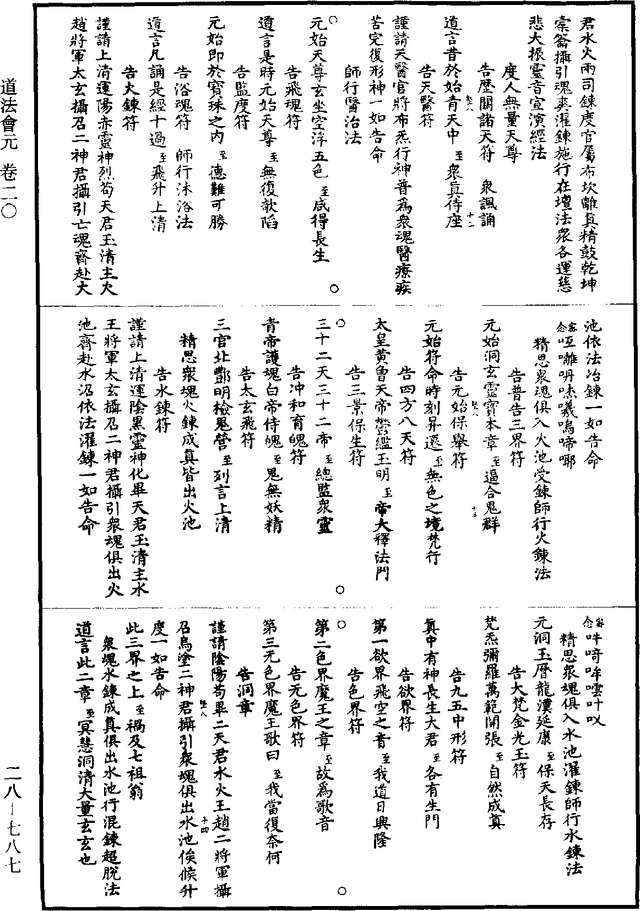 君水火兩司鍊度官屬布坎離真精鼓乾坤
橐籥攝引魂爽濯鍊施行在壇法衆各運慈
悲大振靈音宣演經法
度人無量天尊
告歷關諸天符　衆諷誦
道言昔於始青天中至衆真侍座
告天醫符
謹請天醫官將布炁行神普為衆魂醫療疾
苦完復形神一如告命
師行醫治法
元始天尊玄坐空浮五色至咸得長生
告飛魂符
道言是時元始天尊至無復欹陷
告監度符
元始即於寶珠之內至德難可勝
告浴魂符　師行沐浴法
道言凡誦是經十過至飛升上清
告火鍊符
謹請上清運陽赤靈神烈苟天君玉清主火
趙將軍太玄攝召二神君攝引亡魂齊赴大
池依法冶鍊一如告命
精思衆魂俱入火池受鍊師行火鍊法
告普告三界符
元始洞玄靈寶本章至逼合鬼群
告元始保舉符
元始符命時刻昇遷至無色之境梵行
告四方八天符
太皇黃曾天帝鬱鑑玉明至帝大釋法門
告三景保生符
三十二天三十二帝至總監衆靈
告冲和育魄符
青帝護魂白帝侍魄至鬼無妖精
告太玄飛符
三官北酆明檢鬼營至列言上清
精思衆魂火鍊成真皆出火池
告水鍊符
謹請上清運陰黑靈神化畢天君玉清主水
王將軍太玄攝召二神君攝引衆魂俱出火
池齊赴水沼依法濯鍊一如告命
精思衆魂俱入水池濯鍊師行水鍊法
元洞玉曆龍漢延康至保天長存
告大梵金光玉符
梵炁彌羅萬範開張至自然成真
告九五中形符
真中有神長生大君至各有生門
告欲界符
第一欲界飛空之音至我道日興隆
告色界符
第二色界魔王之章至故為歌音
告无色界符
第三无色界魔王歌曰至我當復奈何
告洞章
謹請陰陽苟畢二天君水火王趙二將軍攝
召烏塗二神君攝引衆魂俱出水池俟候升
度一如告命
此三界之上至禍及七祖翁
衆魂水鍊成真俱出水池行混鍊超脫法
道言此二章至冥慧洞清大量玄玄也
道法會元　卷二〇
二八—七八七